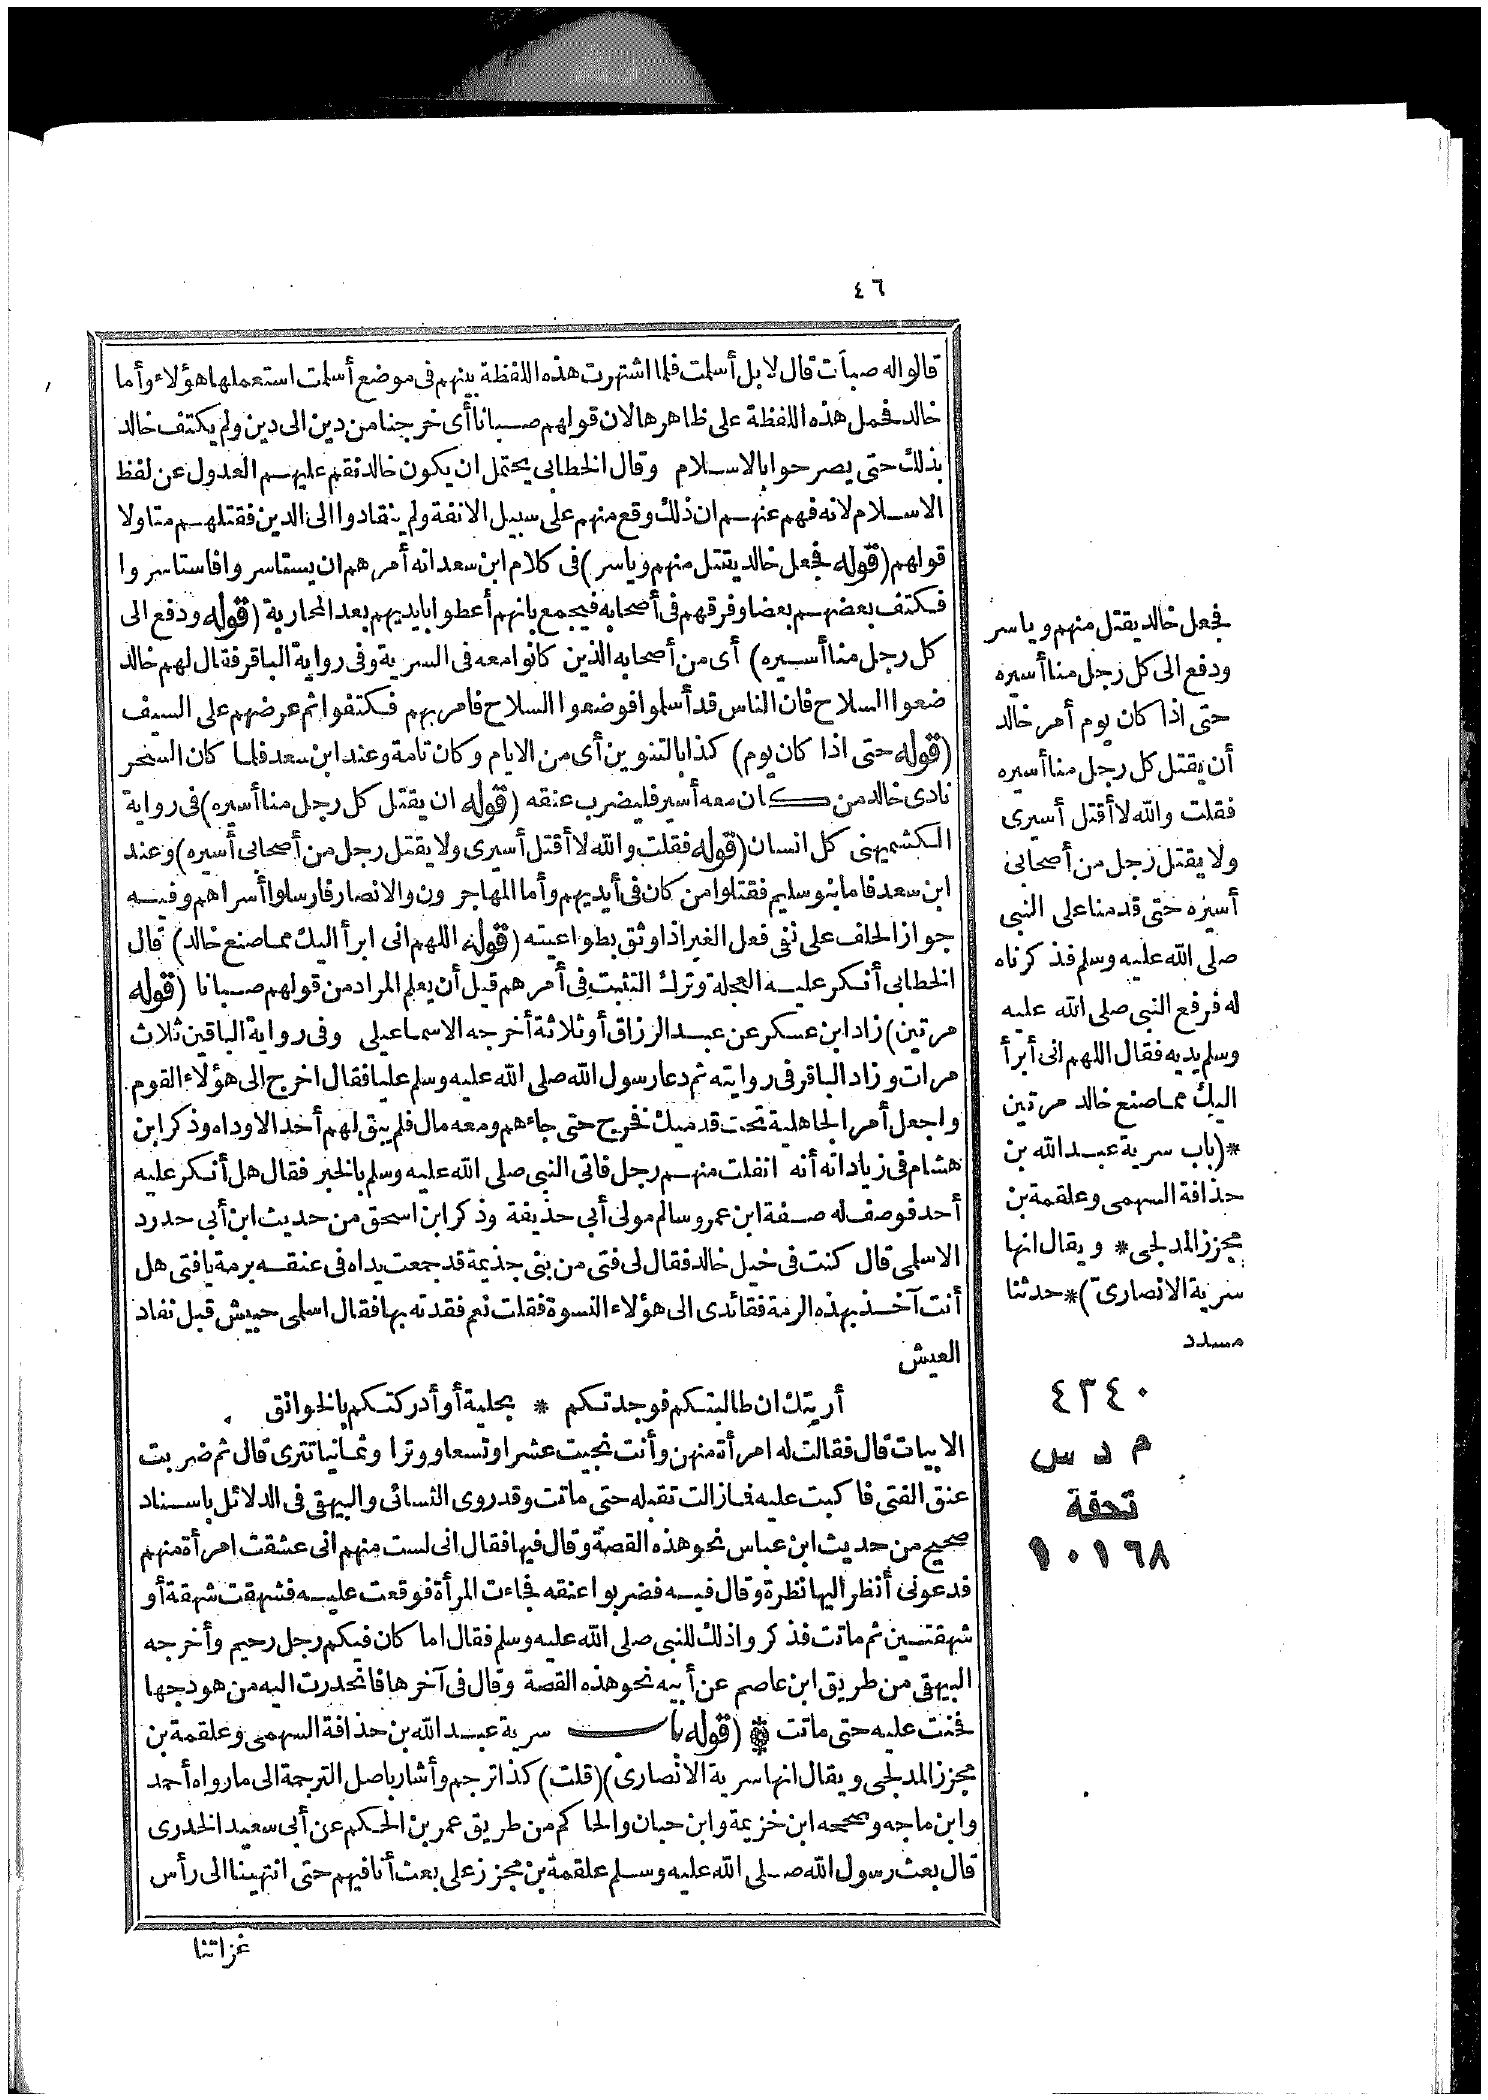 ٤٦
قالوا له صبأت قال لا بل أسلمت فلما اشتهرت هذه اللفظة بينهم فى موضع أسلمت استعملها هؤلاء وأما
خالد فحمل هذه اللفظة على ظاهرها لان قولهم صبانا أى خرجنا من دين الى دين ولم يكتف خالد
بذلك حتى يصرحوا بالاسلام وقال الخطابى يحتمل ان يكون خالد نقم عليهم العدول عن لفظ
الاسلام لانه فهم عنهم ان ذلك وقع منهم على سبيل الانفة ولم ينقادوا الى الدين فقتلهم متاولا
قولهم (قوله فجعل خالد يقتل منهم وياسر) فى كلام ابن سعد انه أمرهم ان يستاسروا فاستاسروا
فكتف بعضهم بعضا وفرقهم فى أصحابه فيجمع بانهم أعطوا بايديهم بعد المحاربة (قوله ودفع الى
كل رجل منا أسيره) أى من أصحابه الذين كانوا معه فى السرية وفى رواية الباقر فقال لهم خالد
ضعوا السلاح فان الناس قد أسلموا فوضعوا السلاح فامر بهم فكتفوا ثم عرضهم على السيف
(قوله حتى اذا كان يوم) كذا بالتنوين أى من الايام وكان تامة وعند ابن سعد فلما كان السحر
نادى خالد من كان معه أسير فليضرب عنقه (قوله ان يقتل كل رجل منا أسيره) فى رواية
الكشميهنى كل انسان (قوله فقلت والله لا أقتل أسيرى ولا يقتل رجل من أصحابى أسيره) وعند
ابن سعد فاما بنو سليم فقتلوا من كان فى أيديهم وأما المهاجرون والانصار فارسلوا أسراهم وفيه
جواز الحلف على نفى فعل الغير اذا وثق بطواعيته (قوله اللهم انى ابرأ اليك مما صنع خالد) قال
الخطابى أنكر عليه العجلة وترك التثبت فى أمرهم قبل أن يعلم المراد من قولهم صبانا (قوله
مرتين) زاد ابن عسكر عن عبد الرزاق أو ثلاثة أخرجه الاسماعيلى وفى رواية الباقين ثلاث
مرات وزاد الباقر فى روايته ثم دعا رسول الله صلى الله عليه وسلم عليا فقال اخرج الى هؤلاء القوم
واجعل أمر الجاهلية تحت قدميك فخرج حتى جاءهم ومعه مال فلم يبق لهم أحد الا وداه وذكر ابن
هشام فى زياداته أنه انفلت منهم رجل فاتى النبى صلى الله عليه وسلم بالخبر فقال هل أنكر عليه
أحد فوصف له صفة ابن عمر وسالم مولى أبى حذيفة وذكر ابن اسحق من حديث ابن أبى حدرد
الاسلمى قال كنت فى خيل خالد فقال لى فتى من بنى جذيمة قد جمعت يداه فى عنقه برمة يا فتى هل
أنت آخذ بهذه الرمة فقائدى الى هؤلاء النسوة فقلت نعم فقدته بها فقال اسلمى حبيش قبل نفاد
العيش
أريتك ان طالبتكم فوجدتكم * بحلية أو أدركتكم بالخوانق
الابيات قال فقالت له امرأة منهن وأنت نجيت عشرا وتسعا ووترا وثمانيا تترى قال ثم ضربت
عنق الفتى فاكبت عليه فما زالت تقبله حتى ماتت وقد روى النسائى والبيهقى فى الدلائل باسناد
صحيح من حديث ابن عباس نحو هذه القصة وقال فيها فقال انى لست منهم انى عشقت امرأة منهم
فدعونى أنظر اليها نظرة وقال فيه فضربوا عنقه فجاءت المرأة فوقعت عليه فشهقت شهقة أو
شهقتين ثم ماتت فذكروا ذلك للنبى صلى الله عليه وسلم فقال اما كان فيكم رجل رحيم وأخرجه
البيهقى من طريق ابن عاصم عن أبيه نحو هذه القصة وقال فى آخرها فانحدرت اليه من هودجها
فحنت عليه حتى ماتت ۞ (قوله باب سرية عبد الله بن حذافة السهمى وعلقمة بن
مجزز المدلجى ويقال انها سرية الانصارى) (قلت) كذا ترجم وأشار باصل الترجمة الى ما رواه أحمد
وابن ماجه وصححه ابن خزيمة وابن حبان والحاكم من طريق عمر بن الحكم عن أبى سعيد الخدرى
قال بعث رسول الله صلى الله عليه وسلم علقمة بن مجزز على بعث أنا فيهم حتى انتهينا الى رأس
غزاتنا
فجعل خالد يقتل منهم وياسر
ودفع الى كل رجل منا أسيره
حتى اذا كان يوم أمر خالد
أن يقتل كل رجل منا أسيره
فقلت والله لا أقتل أسيرى
ولا يقتل رجل من أصحابى
أسيره حتى قدمنا على النبى
صلى الله عليه وسلم فذكرناه
له فرفع النبى صلى الله عليه
وسلم يديه فقال اللهم انى أبرأ
اليك مما صنع خالد مرتين
*(باب سرية عبد الله بن
حذافة السهمى وعلقمة بن
مجزز المدلجى* ويقال انها
سرية الانصارى)* حدثنا
مسدد
٤٣٤٠
م د س
تحفة
١٠١٦٨